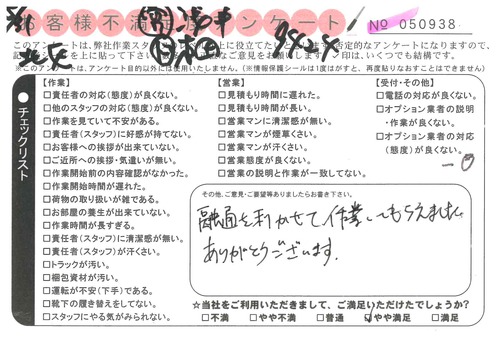 お客様不満足度アンケート
No 050938
このアンケートは、弊社作業スタッフの
否定的なアンケートになりますので、
印は、いくつでも結構です。
※このアンケートは、アンケート目的以外には使用いたしません。(※情報保護シールは1度はがすと、再度貼りなおすことはできません)
チェックリスト
【作業】
□責任者の対応(態度)が良くない。
□他のスタッフの対応(態度)が良くない。
□作業を見ていて不安がある。
□責任者(スタッフ)に好感が持てない。
□お客様への挨拶が出来ていない。
□ご近所への挨拶・気遣いが無い。
□作業開始前の内容確認がなかった。
□作業開始時間が遅れた。
□荷物の取り扱いが雑である。
□お部屋の養生が出来ていない。
□作業時間が長すぎる。
□責任者(スタッフ)に清潔感が無い。
□責任者(スタッフ)が汗くさい。
□トラックが汚い。
□梱包資材が汚い。
□運転が不安(下手)である。
□靴下の履き替えをしてない。
□スタッフにやる気がみられない。
【営業】
□見積もり時間に遅れた。
□見積もり時間が長い。
□営業マンに清潔感が無い。
□営業マンが煙草くさい。
□営業マンが汗くさい。
□営業態度が良くない。
□営業の説明と作業が一致してない。
【受付・その他】
□電話の対応が良くない。
□オプション業者の説明
・作業が良くない。
□オプション業者の対応
(態度)が良くない。
その他、ご意見・ご要望等ありましたらお書き下さい。
融通を利かせて作業してもらえました。
ありがとうございます。
☆当社をご利用いただきまして、ご満足いただけたでしょうか?
□不満 □やや不満 □普通 ☑やや満足 □満足